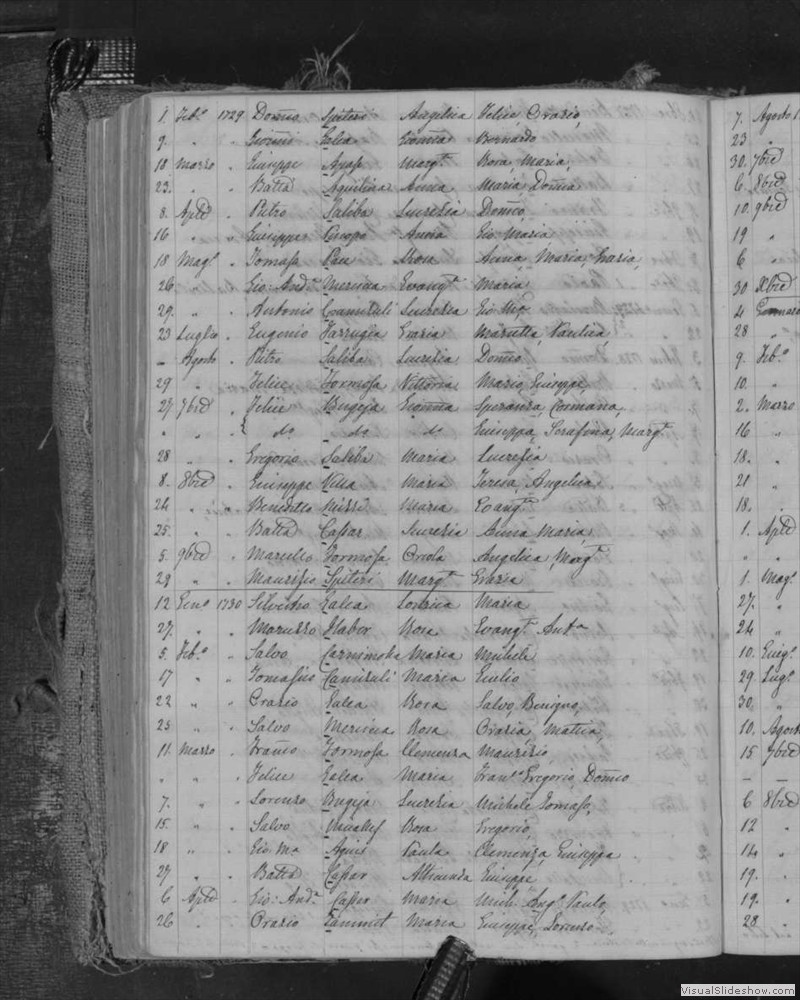 1. Feb.o 1729 Dom̃o Spiteri Angelica Felice Orazio,
9. " " Giom̃i Zalea Giom̃a Bernardo
18 Marzo " Giuseppe Apap Margt. Rosa, Maria,
23. " " Batta Aquilina Anna Maria Dom̃ca
8. Aple " Pietro Saliba Lucrezia Dom̃co,
16 " " Giuseppe Anna Gio: Maria
18 Mago. " Tomaso Pau Rosa Anna, Maria, Grazia,
26. " " Gio: And.a Mercieca Evangt. Maria
29. " " Antonio Camiruli Lucrezia Gio
23 Luglio " Eugenio Farrugia Grazia Marietta, Paulica,
– Agosto " Pietro Saliba Lucrezia Dom̃co.
29 " " Felice Formosa Vittoria Mario, Giuseppe,
27. 7bre " Felice Bugeja Giom̃a Speranza, Germana,
" " " do. do. do. Giuseppa, Serafina, Margt.
28 " " Gregorio Saliba Maria Lucrezia
8. 8bre " Giuseppe Vella Maria Teresa, Angelica,
24 " " Benedetto Mizzi Maria Evangt.
25. " " Batta Cassar Lucrezia Anna Maria,
5. 9bre " Marcello Formosa Orsola Angelica, Margt.
28 " " Maurizio Spiteri Margt. Grazia
12 Genn.o 1730 Silvestro Zalea Lonica Maria
27. " " Maruzzo Habor Rosa Evangt. Ant.a
5. Feb.o " Salvo Carnimola Maria Michele
17 " " Tomasio Camiruli Maria Giulio
22 " " Orazio Zalea Rosa Salvo, Benigno,
25 " " Salvo Mercieca Rosa Oraria, Mattia,
11. Marzo " Franco Formosa Clemenza Maurizio,
" " " Felice Zalea Maria Fran.co Gregorio, Dom̃co
7. " " Lorenzo Bugeja Lucrezia Michele Tomaso,
15. " " Salvo Muscat Rosa Gregorio,
18 " " Gio: Ma Agius Paula Clemenza Giuseppa
27 " " Batta Cassar Giuseppe
6 Aple " Gio: And.a Casser Maria Mich: Ang.o Paulo,
26 " " Orazio Zammit Maria Giuseppe, Lorenzo.
7. Agosto
23 "
30. 7bre
6. 8bre
10. 9bre
19 "
6 "
30 Xbre
4 Gennaro
28 "
9. Feb.o
10. "
2. Marzo
16 "
18. "
21 "
18. "
1. Aple
" "
1. Mago.
27. "
24 "
10. Giug.o
29. Lug.o
30. "
10. Agosto
15 7bre
– –
6 8bre
12 "
14 "
19. "
19. "
28 "
VisualSlideshow.com